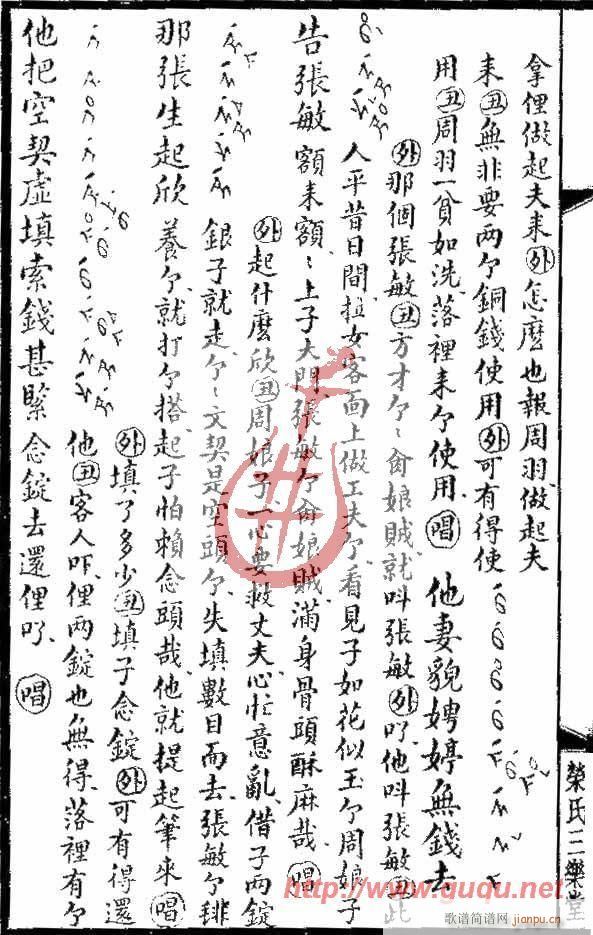 拿俚做起夫来(外)怎麽也報周羽做起夫
来(丑)無非要两个銅錢使用(外)可有得使
用(丑)周羽一貧如洗落裡来个使用(唱)他妻貌娉婷無錢去
(外)那個張敏(丑)方才个〻肏娘賊就呌張敏(外)吖他呌張敏(丑)此
人平昔日間拉女客面上做工夫个看見子如花似玉个周娘子
告張敏額来額〻上子大門張敏个肏娘賊滿身骨頭酥麻哉(唱)
(外)起什麽欣(丑)周娘子一心要救丈夫心忙意亂借子两錠
銀子就走个〻文契是空頭个失填數目而去張敏个
那張生起欣養个就打个搭起子怕賴念頭哉他就提起筆來(唱)
(外)填了多少(丑)填子念錠(外)可有得還
他(丑)客人吓俚两錠也無得落裡有个
他把空契虛填索錢甚緊念錠去還俚吖(唱)
榮氏三樂堂
http://www.guqu.net
歌谱简谱网
jianpu.cn